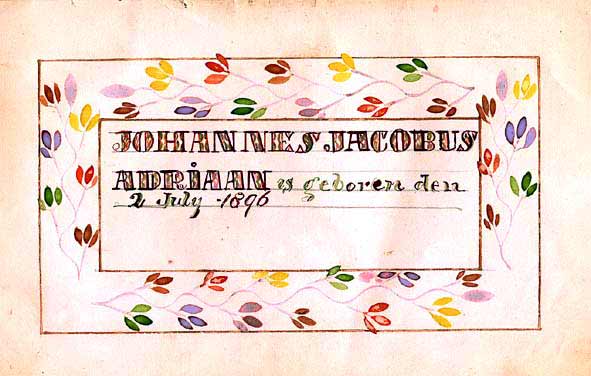 JOHANNES JACOBUS
ADRIAAN is geboren den
2 July 1896